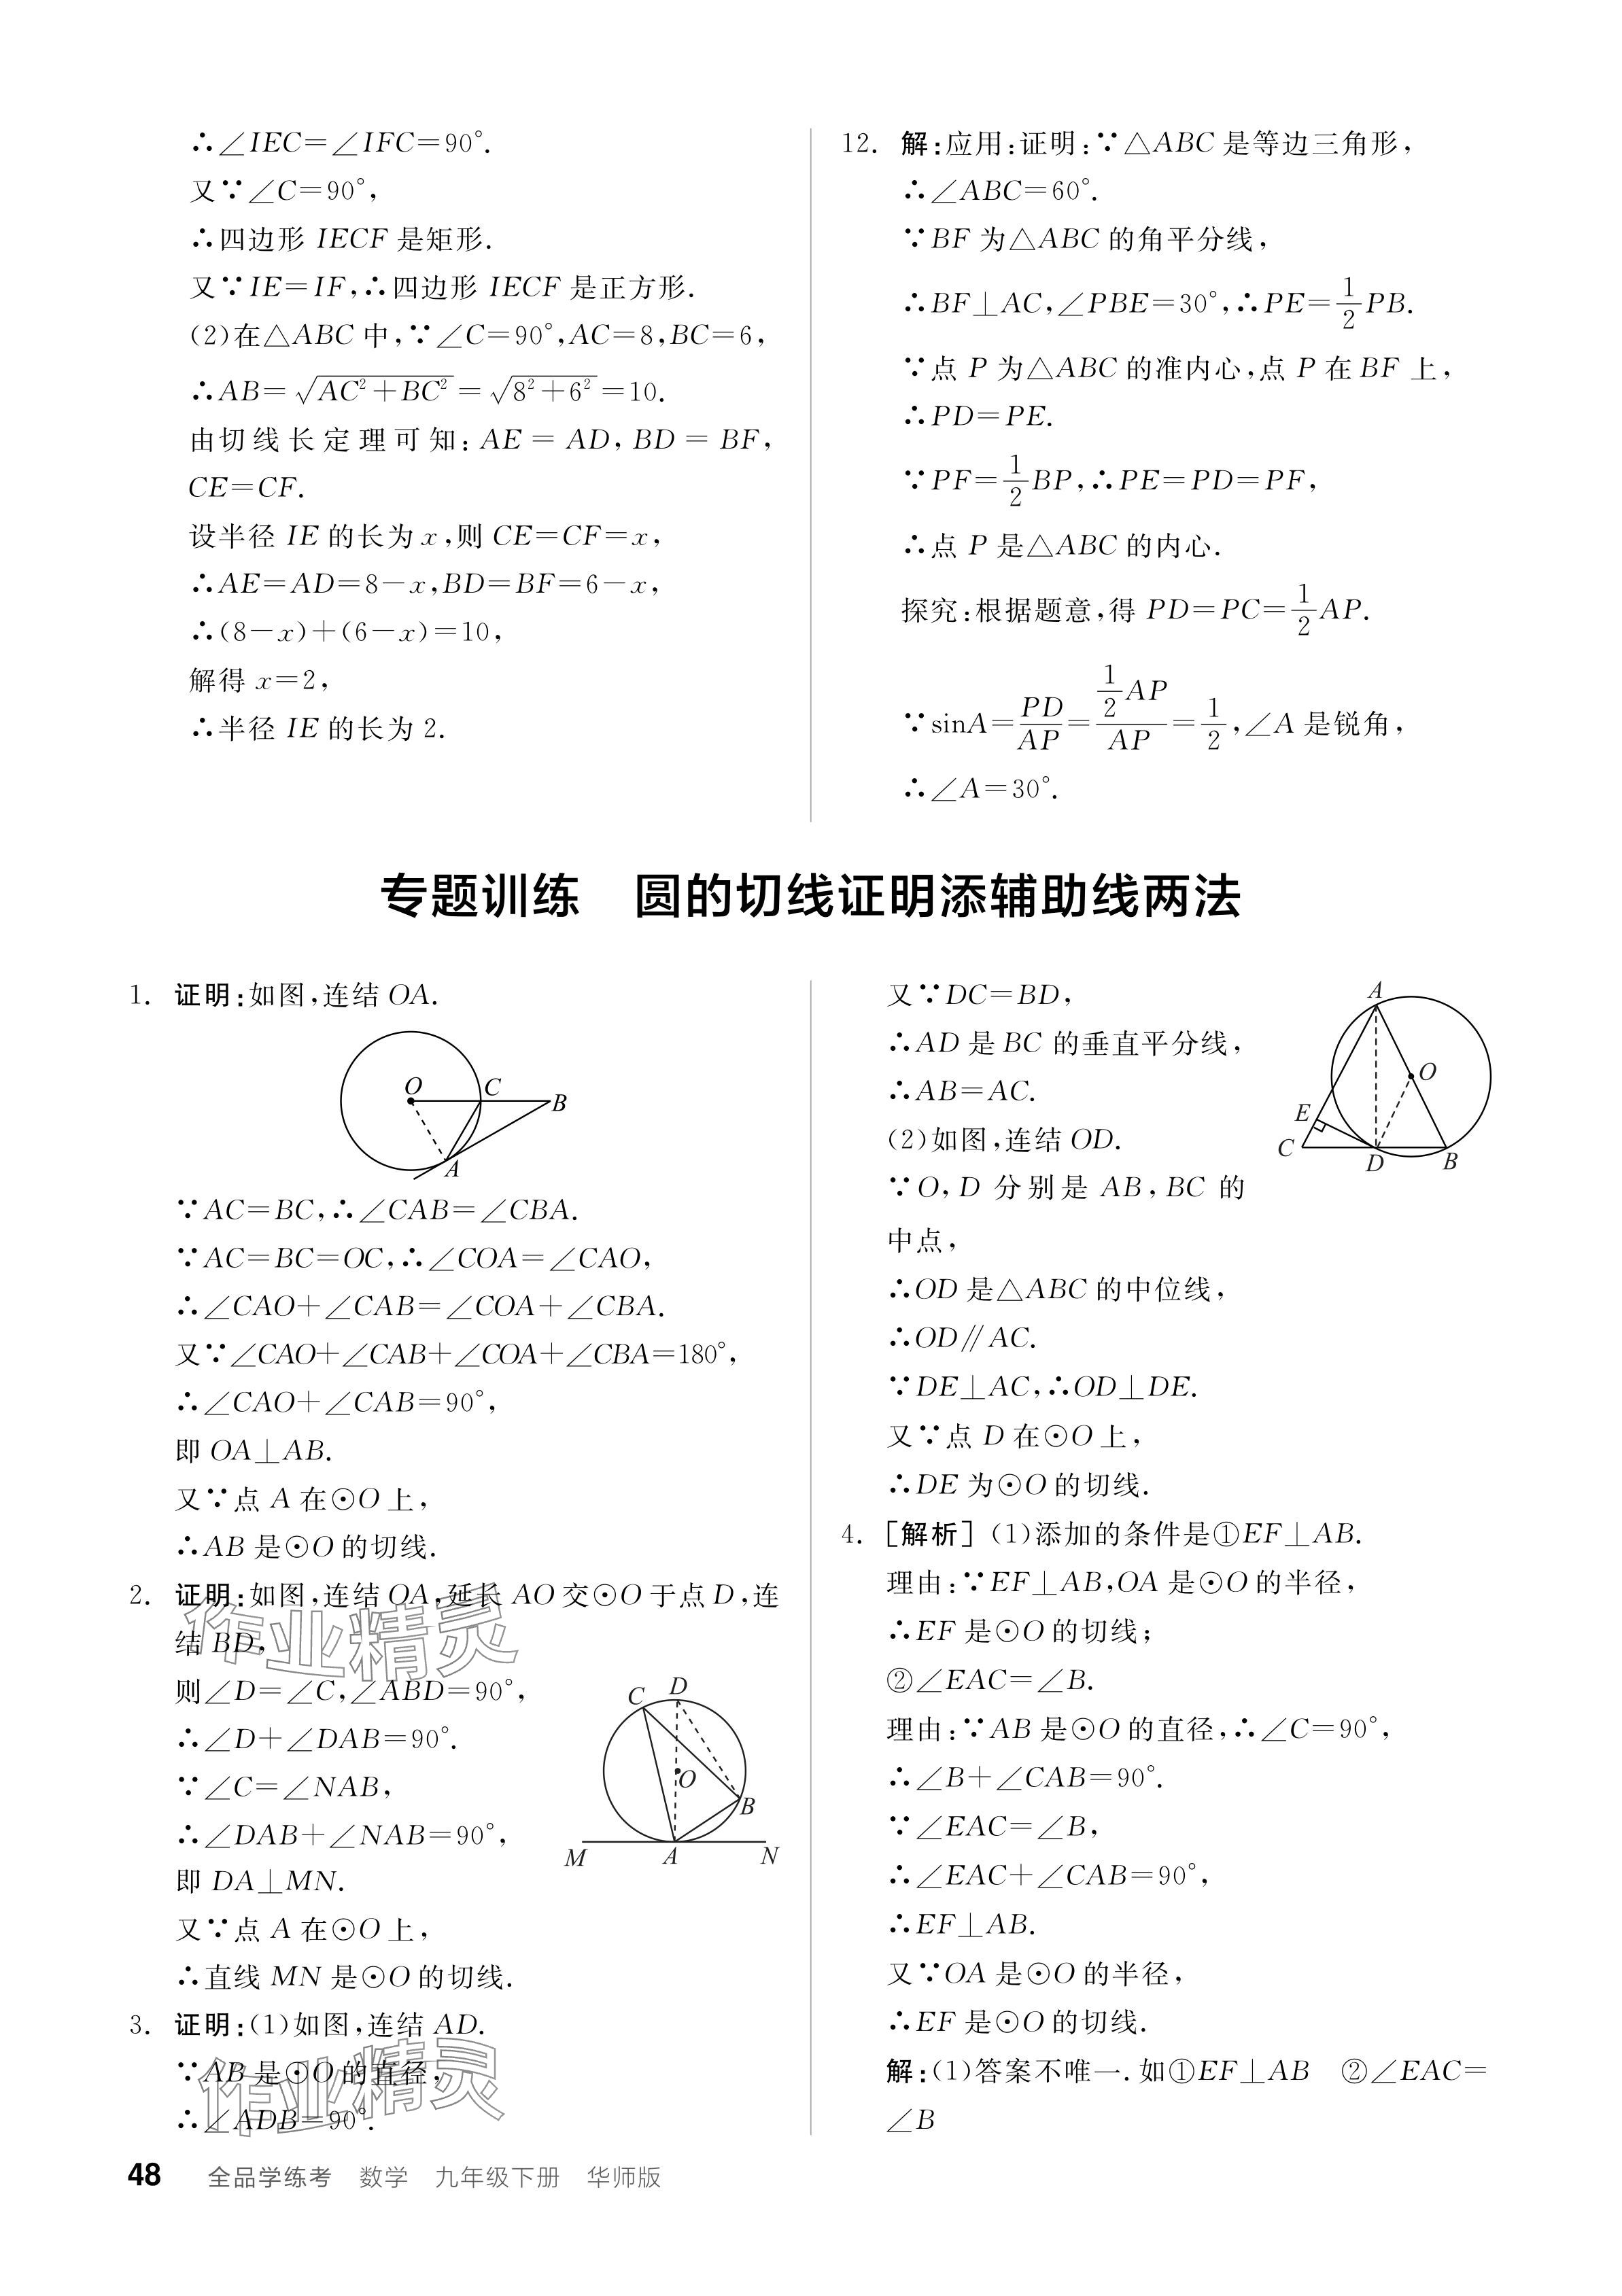 ∴∠IEC=∠IFC=90°.
又∵∠C=90°,
∴四边形 IECF 是矩形.
又∵IE=IF,∴四边形 IECF 是正方形.
(2)在△ABC 中,∵∠C=90°,AC=8,BC=6,
∴AB=√(AC²+BC²)=√(8²+6²)=10.
由切线长定理可知: AE = AD, BD = BF,
CE=CF.
设半径 IE 的长为 x,则 CE=CF=x,
∴AE=AD=8-x,BD=BF=6-x,
∴(8-x)+(6-x)=10,
解得 x=2,
∴半径 IE 的长为 2.
12. 解:应用:证明:∵△ABC 是等边三角形,
∴∠ABC=60°.
∵BF 为△ABC 的角平分线,
∴BF⊥AC,∠PBE=30°,∴PE=1/2PB.
∵点 P 为△ABC 的准内心,点 P 在 BF 上,
∴PD=PE.
∵PF=1/2BP,∴PE=PD=PF,
∴点 P 是△ABC 的内心.
探究:根据题意,得 PD=PC=1/2AP.
∵sinA=PD/AP=(1/2AP)/AP=1/2,∠A 是锐角,
∴∠A=30°.
专题训练　圆的切线证明添辅助线两法
1. 证明:如图,连结 OA.
O
C
B
A
∵AC=BC,∴∠CAB=∠CBA.
∵AC=BC=OC,∴∠COA=∠CAO,
∴∠CAO+∠CAB=∠COA+∠CBA.
又∵∠CAO+∠CAB+∠COA+∠CBA=180°,
∴∠CAO+∠CAB=90°,
即 OA⊥AB.
又∵点 A 在⊙O 上,
∴AB 是⊙O 的切线.
2. 证明:如图,连结 OA,延长 AO 交⊙O 于点 D,连
结 BD,
则∠D=∠C,∠ABD=90°,
∴∠D+∠DAB=90°.
∵∠C=∠NAB,
∴∠DAB+∠NAB=90°,
即 DA⊥MN.
又∵点 A 在⊙O 上,
∴直线 MN 是⊙O 的切线.
C
D
O
B
M
A
N
3. 证明:(1)如图,连结 AD.
∵AB 是⊙O 的直径,
∴∠ADB=90°.
又∵DC=BD,
∴AD 是 BC 的垂直平分线,
∴AB=AC.
(2)如图,连结 OD.
∵O, D 分别是 AB, BC 的
中点,
∴OD 是△ABC 的中位线,
∴OD∥AC.
∵DE⊥AC,∴OD⊥DE.
又∵点 D 在⊙O 上,
∴DE 为⊙O 的切线.
A
O
E
C
D
B
4. [解析] (1)添加的条件是①EF⊥AB.
理由:∵EF⊥AB,OA 是⊙O 的半径,
∴EF 是⊙O 的切线;
②∠EAC=∠B.
理由:∵AB 是⊙O 的直径,∴∠C=90°,
∴∠B+∠CAB=90°.
∵∠EAC=∠B,
∴∠EAC+∠CAB=90°,
∴EF⊥AB.
又∵OA 是⊙O 的半径,
∴EF 是⊙O 的切线.
解:(1)答案不唯一. 如①EF⊥AB　②∠EAC=
∠B
作业精灵
作业精灵
48　全品学练考　数学　九年级下册　华师版